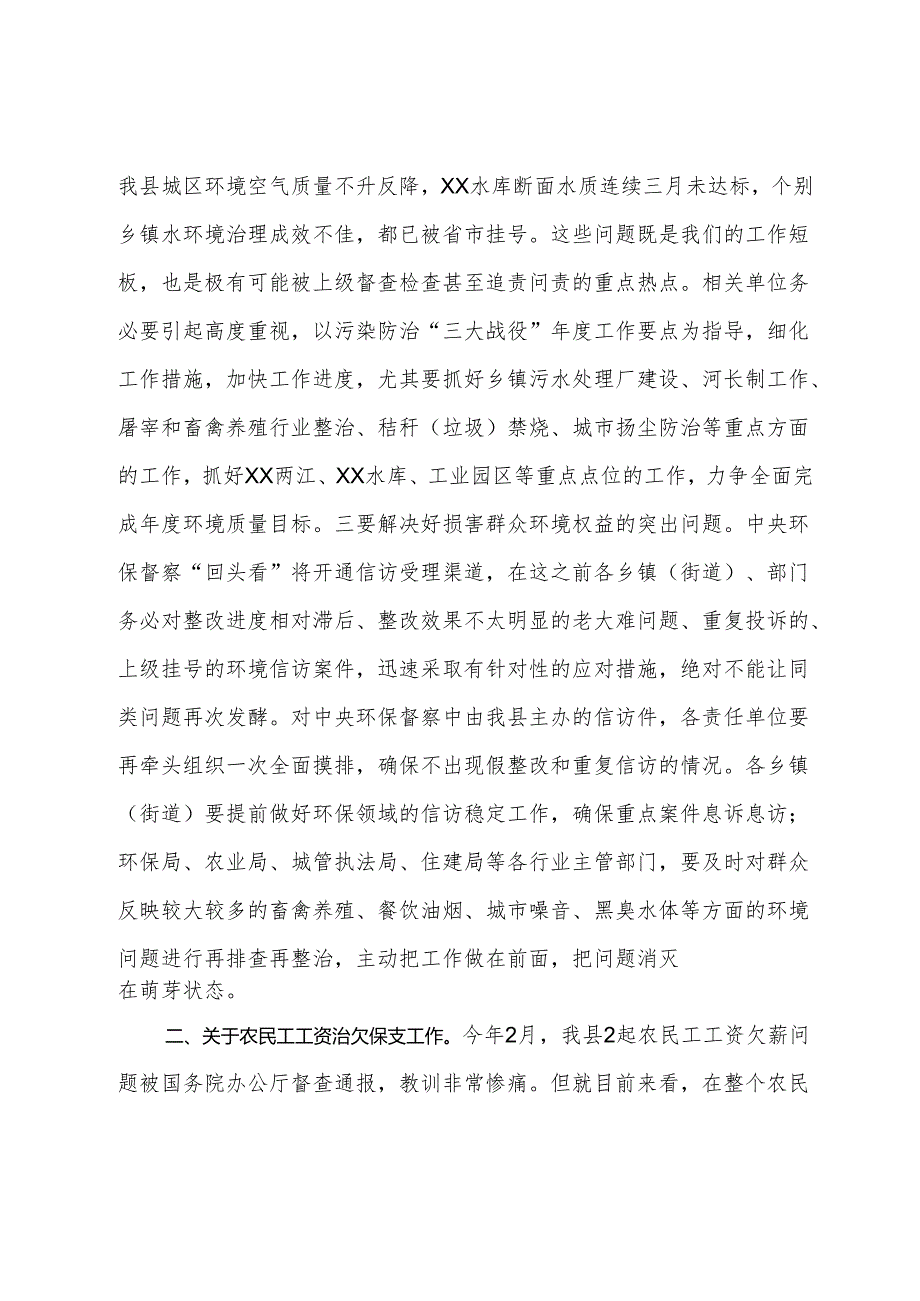 我县城区环境空气质量不升反降，XX水库断面水质连续三月未达标，个别
乡镇水环境治理成效不佳，都已被省市挂号。这些问题既是我们的工作短
板，也是极有可能被上级督查检查甚至追责问责的重点热点。相关单位务
必要引起高度重视，以污染防治“三大战役”年度工作要点为指导，细化
工作措施，加快工作进度，尤其要抓好乡镇污水处理厂建设、河长制工作、
屠宰和畜禽养殖行业整治、秸秆（垃圾）禁烧、城市扬尘防治等重点方面
的工作，抓好XX两江、XX水库、工业园区等重点点位的工作，力争全面完
成年度环境质量目标。三要解决好损害群众环境权益的突出问题。中央环
保督察“回头看”将开通信访受理渠道，在这之前各乡镇（街道）、部门
务必对整改进度相对滞后、整改效果不太明显的老大难问题、重复投诉的、
上级挂号的环境信访案件，迅速采取有针对性的应对措施，绝对不能让同
类问题再次发酵。对中央环保督察中由我县主办的信访件，各责任单位要
再牵头组织一次全面摸排，确保不出现假整改和重复信访的情况。各乡镇
（街道）要提前做好环保领域的信访稳定工作，确保重点案件息诉息访；
环保局、农业局、城管执法局、住建局等各行业主管部门，要及时对群众
反映较大较多的畜禽养殖、餐饮油烟、城市噪音、黑臭水体等方面的环境
问题进行再排查再整治，主动把工作做在前面，把问题消灭
在萌芽状态。
二、关于农民工工资治欠保支工作。今年2月，我县2起农民工工资欠薪问
题被国务院办公厅督查通报，教训非常惨痛。但就目前来看，在整个农民